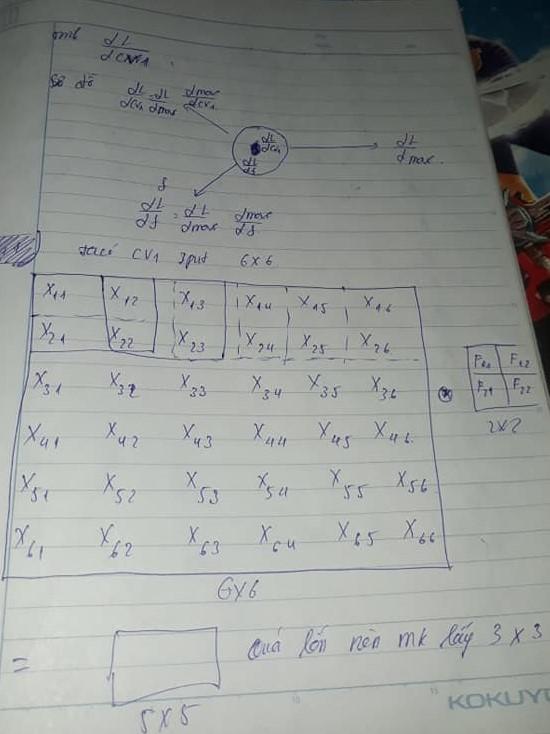 dL
dCNN1
Sơ đồ dL/dCV1 = dL/dmax dmax/dCV1
dL/dCV1
dL/df
dL/dmax.
f
dL/df = dL/dmax dmax/df
CV1 input 6x6
X11 X12 X13 X14 X15 X16
X21 X22 X23 X24 X25 X26
X31 X32 X33 X34 X35 X36
X41 X42 X43 X44 X45 X46
X51 X52 X53 X54 X55 X56
X61 X62 X63 X64 X65 X66
F11 F12
F21 F22
2x2
6x6
= quá lớn nên mk lấy 3x3
5x5
KOKUYO